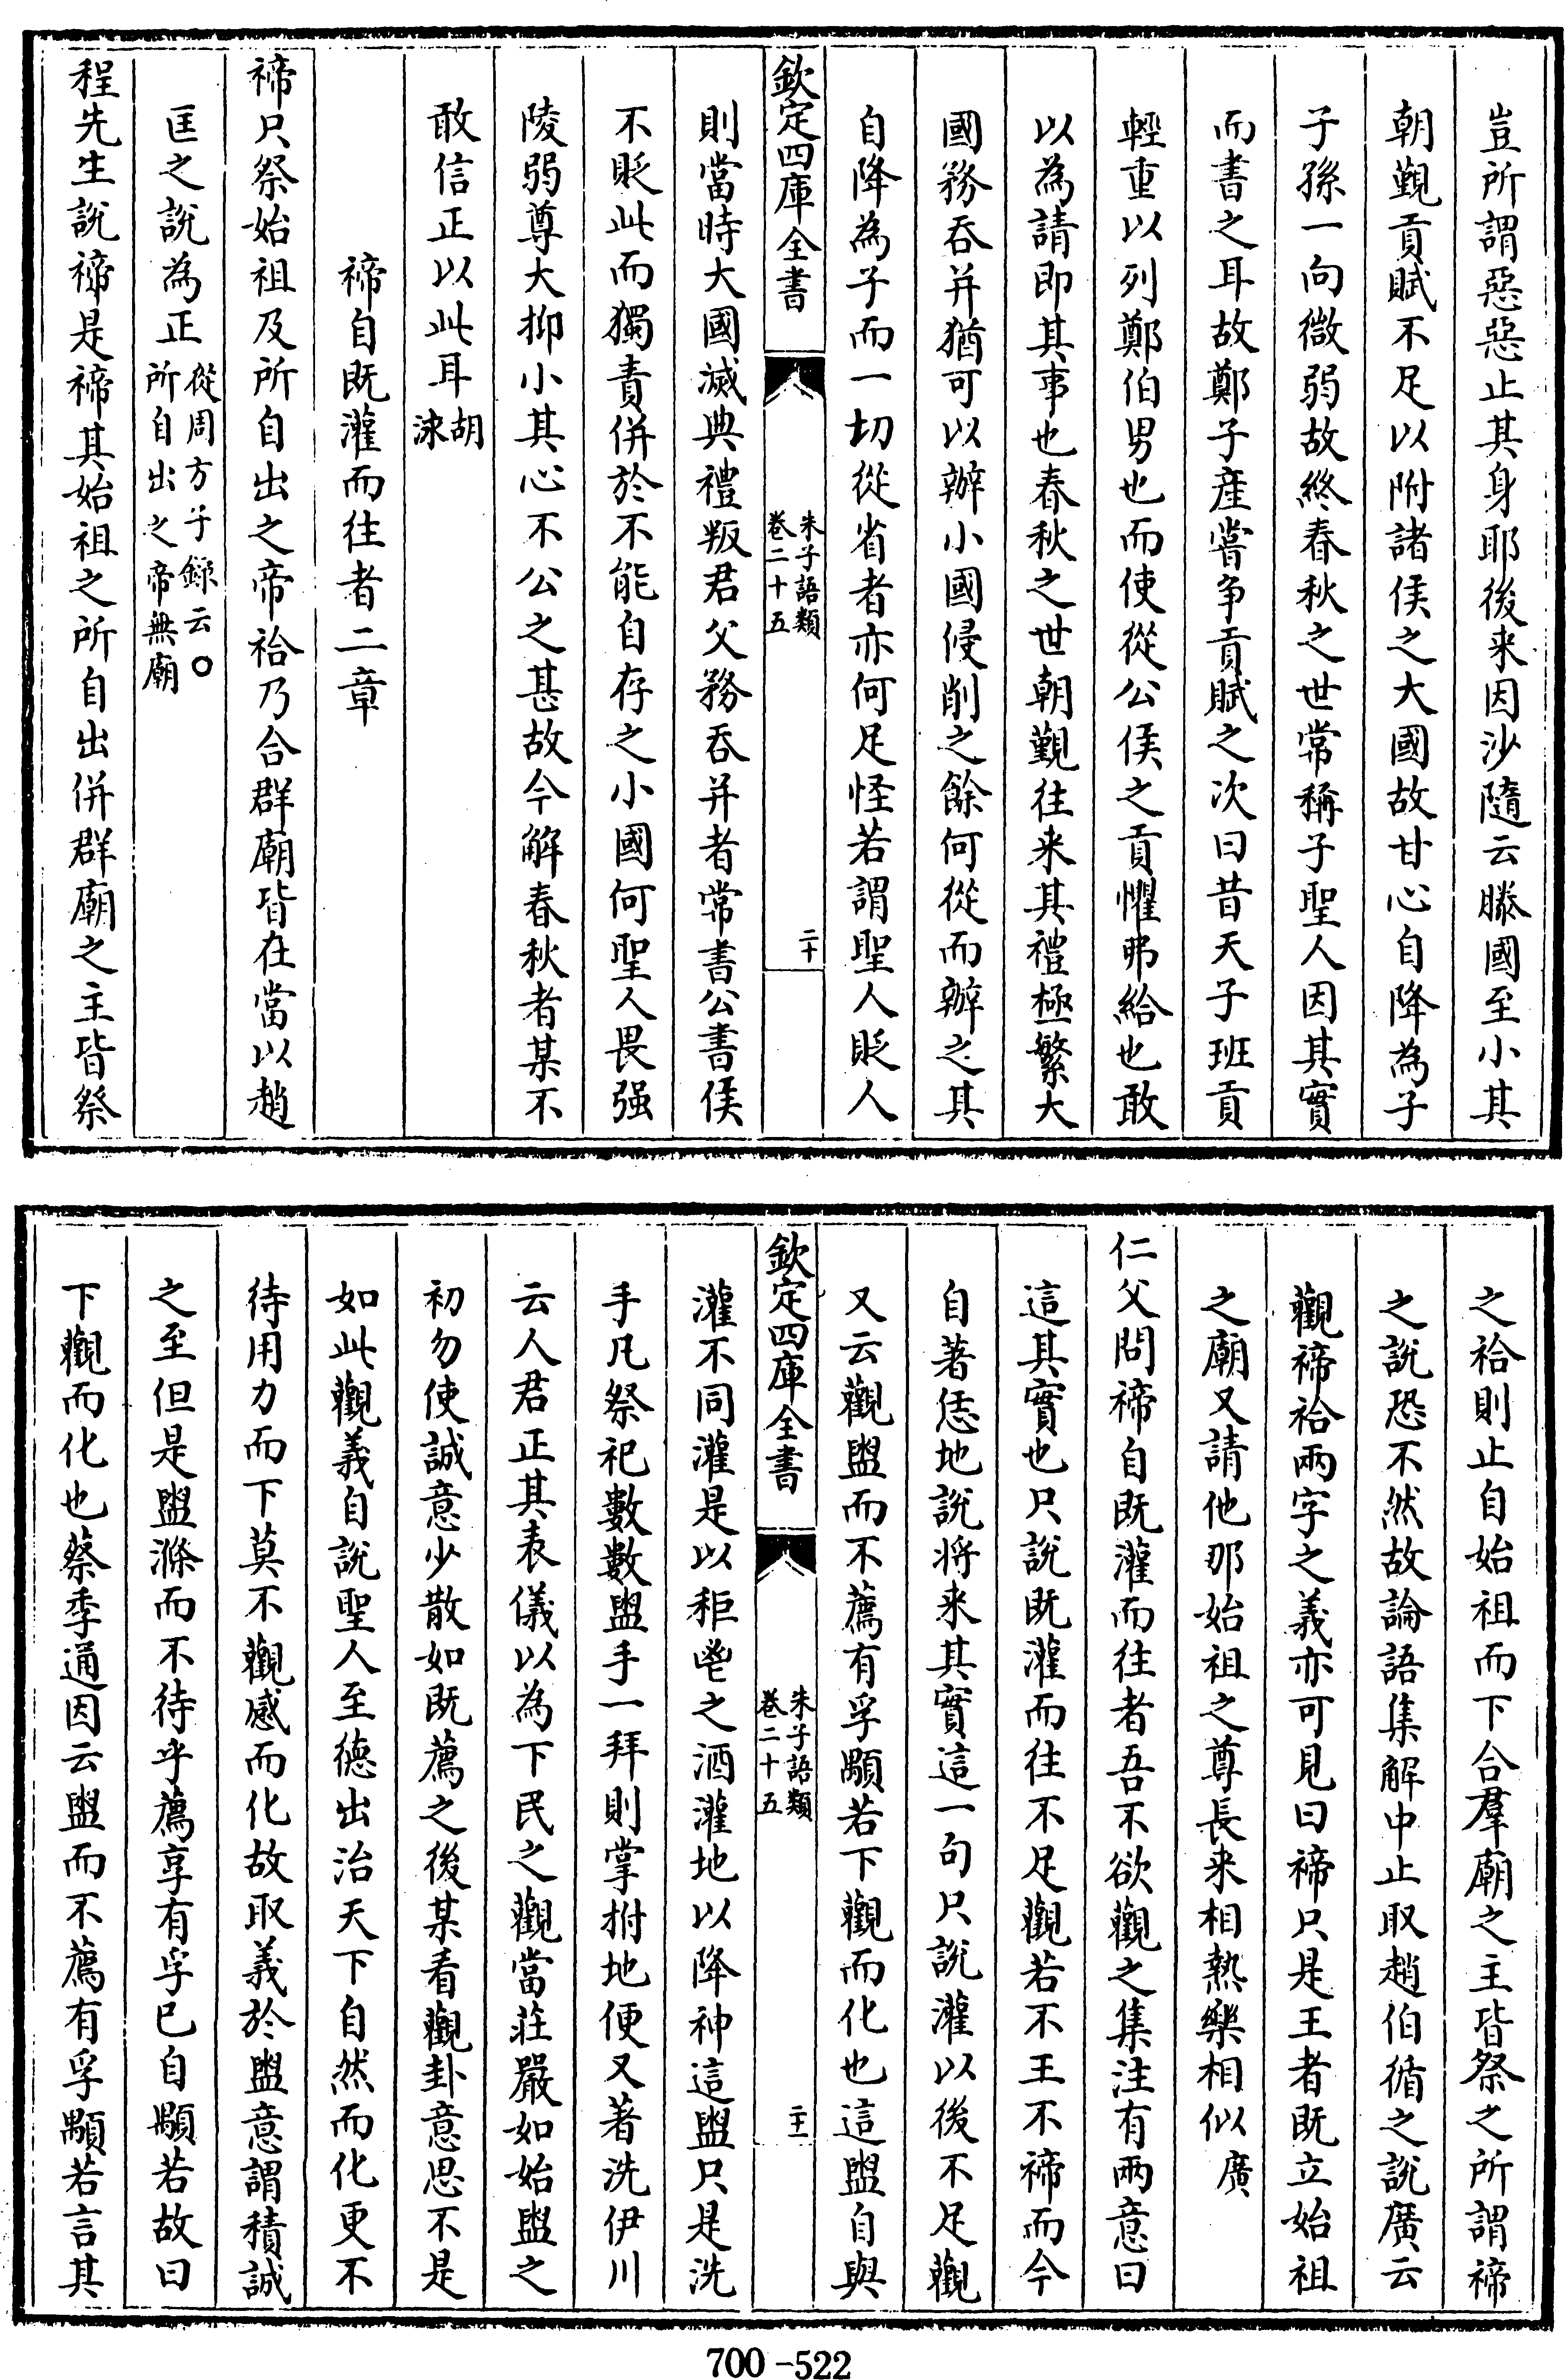 豈所謂惡惡止其身耶後来因沙隨云滕國至小其
朝覲貢賦不足以附諸侯之大國故甘心自降為子
子孫一向微弱故終春秋之世常稱子聖人因其實
而書之耳故鄭子產嘗争貢賦之次曰昔天子班貢
輕重以列鄭伯男也而使從公侯之貢懼弗給也敢
以為請即其事也春秋之世朝覲往来其禮極繁大
國務吞并猶可以辦小國侵削之餘何從而辦之其
自降為子而一切從省者亦何足怪若謂聖人貶人
欽定四庫全書
朱子語類
卷二十五
二十
則當時大國滅典禮叛君父務吞并者常書公書侯
不貶此而獨責併於不能自存之小國何聖人畏强
陵弱尊大抑小其心不公之甚故今解春秋者某不
敢信正以此耳胡泳
禘自既灌而往者二章
禘只祭始祖及所自出之帝祫乃合群廟皆在當以趙
匡之說為正從周方子錄云○所自出之帝無廟
程先生說禘是禘其始祖之所自出併群廟之主皆祭
之祫則止自始祖而下合羣廟之主皆祭之所謂禘
之說恐不然故論語集解中止取趙伯循之說廣云
觀禘祫兩字之義亦可見曰禘只是王者既立始祖
之廟又請他那始祖之尊長来相熱樂相似廣
仁父問禘自既灌而往者吾不欲觀之集注有兩意曰
這其實也只說既灌而往不足觀若不王不禘而今
自著恁地說将来其實這一句只說灌以後不足觀
又云觀盥而不薦有孚顒若下觀而化也這盥自與
欽定四庫全書
朱子語類
卷二十五
二十一
灌不同灌是以秬鬯之酒灌地以降神這盥只是洗
手凡祭祀數數盥手一拜則掌拊地便又著洗伊川
云人君正其表儀以為下民之觀當莊嚴如始盥之
初勿使誠意少散如既薦之後某看觀卦意思不是
如此觀義自說聖人至德出治天下自然而化更不
待用力而下莫不觀感而化故取義於盥意謂積誠
之至但是盥滌而不待乎薦享有孚已自顒若故曰
下觀而化也蔡季通因云盥而不薦有孚顒若言其
700-522